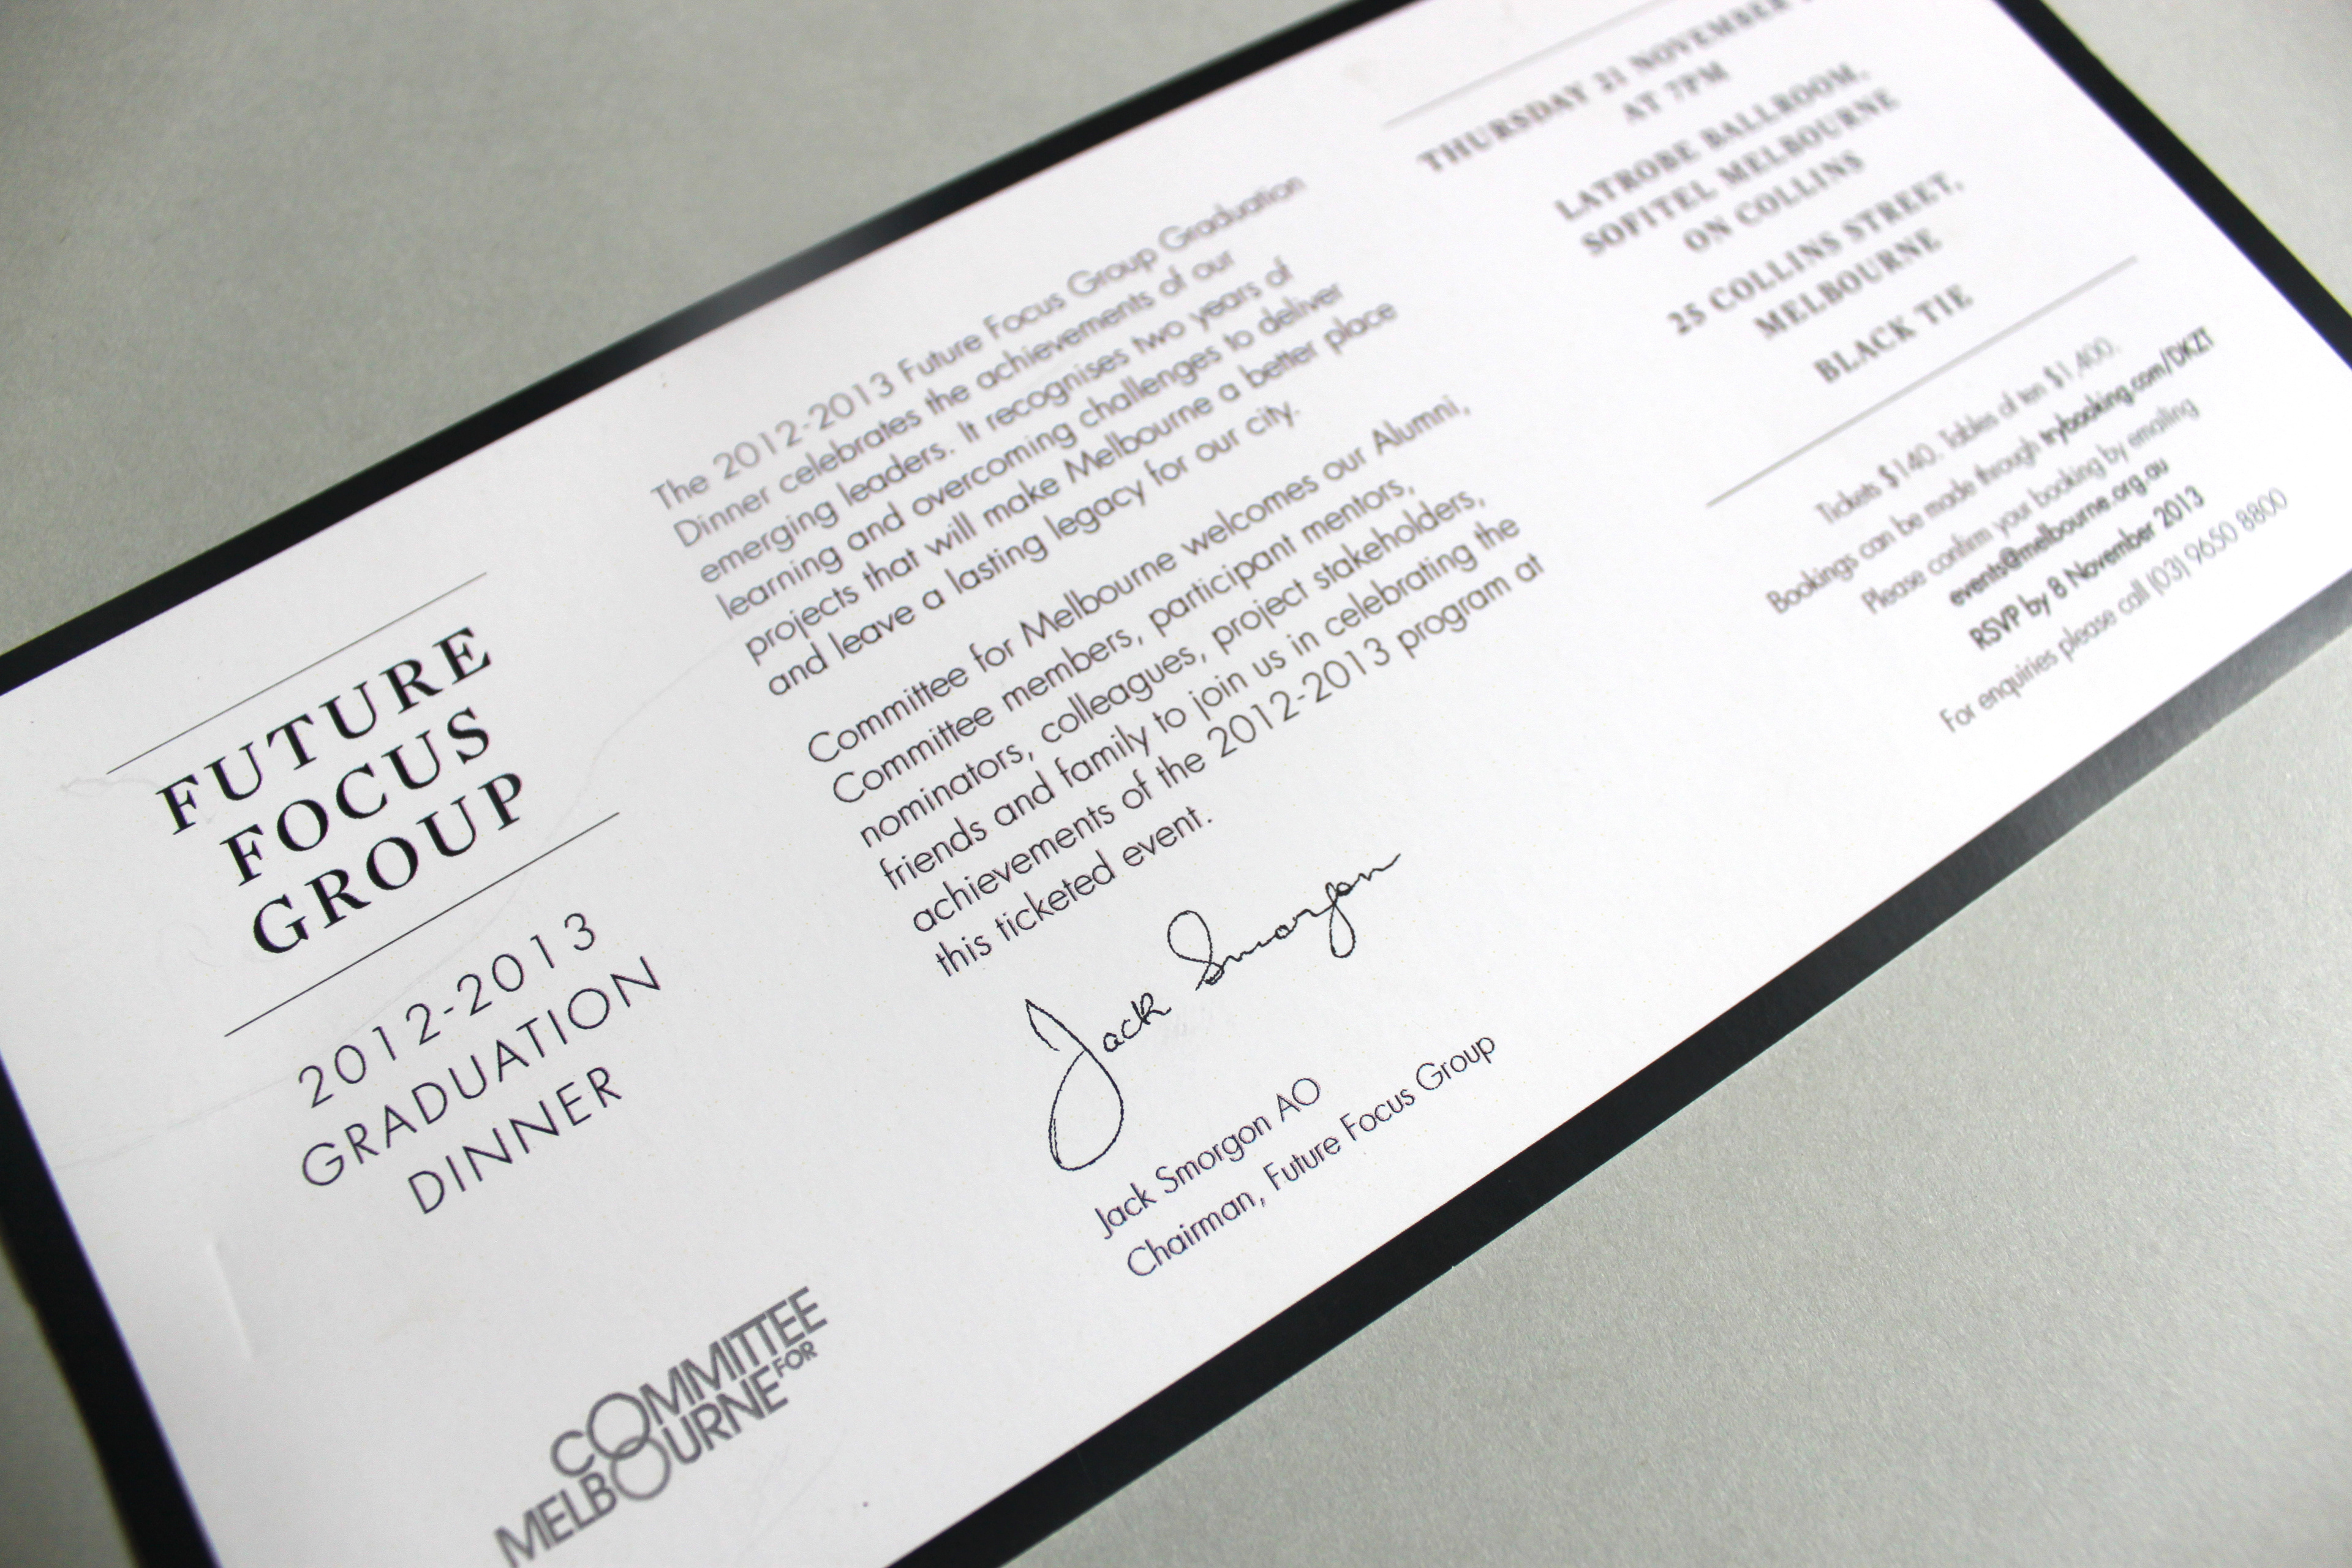 FUTURE
FOCUS
GROUP
2012-2013
GRADUATION
DINNER
COMMITTEE
FOR
MELBOURNE
The 2012-2013 Future Focus Group Graduation
Dinner celebrates the achievements of our
emerging leaders. It recognises two years of
learning and overcoming challenges to deliver
projects that will make Melbourne a better place
and leave a lasting legacy for our city.
Committee for Melbourne welcomes our Alumni,
Committee members, participant mentors,
nominators, colleagues, project stakeholders,
friends and family to join us in celebrating the
achievements of the 2012-2013 program at
this ticketed event.
Jack Smorgon
Jack Smorgon AO
Chairman, Future Focus Group
THURSDAY 21 NOVEMBER
AT 7PM
LATROBE BALLROOM,
SOFITEL MELBOURNE
ON COLLINS
25 COLLINS STREET,
MELBOURNE
BLACK TIE
Tickets $140. Tables of ten $1,400.
Bookings can be made through trybooking.com/DKZT
Please confirm your booking by emailing
events@melbourne.org.au
RSVP by 8 November 2013
For enquiries please call (03) 9650 8800